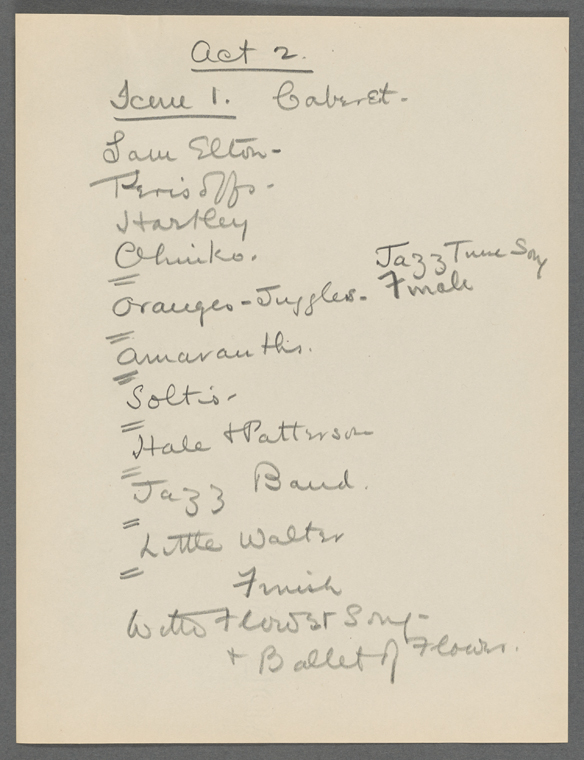 Act 2.
Scene 1. Cabaret-
Sam Elton-
Perisoffs-
Hartley
Chinko.
Jazz Tune Song
Finale
Oranges-Juggler-
Amaranths.
Soltis-
Hale + Patterson
Jazz Band.
Little Walter
Finish
With Flower Song-
+ Ballet of Flowers.